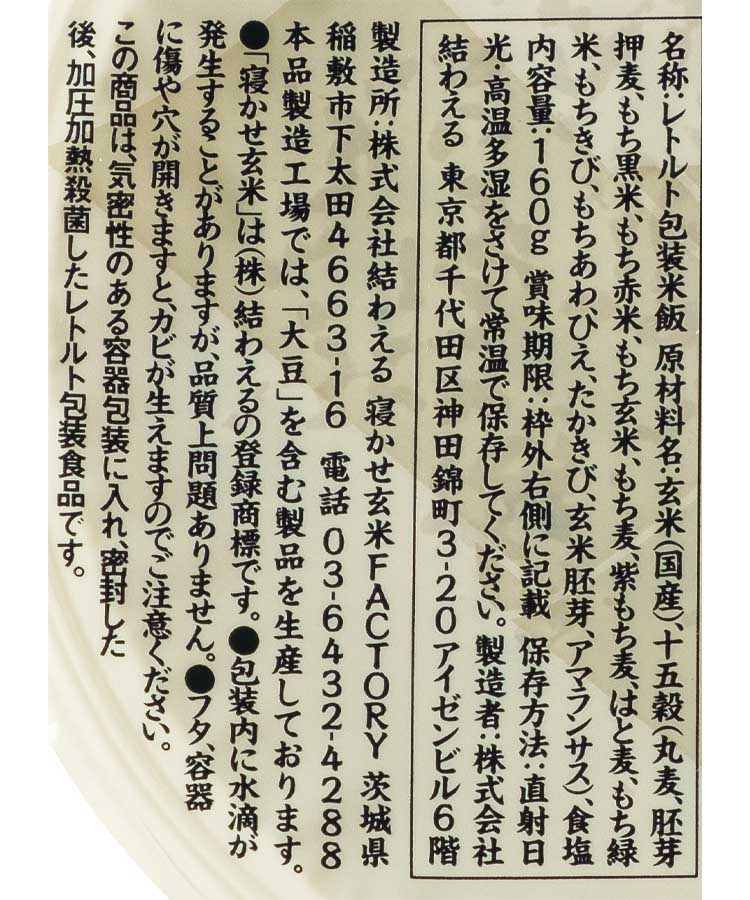 名称:レトルト包装米飯 原材料名:玄米(国産)、十五穀(丸麦、胚芽
押麦、もち黒米、もち赤米、もち玄米、もち麦、紫もち麦、はと麦、もち緑
米、もちきび、もちあわ、ひえ、たかきび、玄米胚芽、アマランサス)、食塩
内容量:160g 賞味期限:枠外右側に記載 保存方法:直射日
光・高温多湿をさけて常温で保存してください。製造者:株式会社
結わえる 東京都千代田区神田錦町3-20アイゼンビル6階
製造所:株式会社結わえる 寝かせ玄米FACTORY 茨城県
稲敷市下太田4663-16 電話 03-6432-4288
本品製造工場では、「大豆」を含む製品を生産しております。
●「寝かせ玄米」は(株)結わえるの登録商標です。●包装内に水滴が
発生することがありますが、品質上問題ありません。●フタ、容器
に傷や穴が開きますと、カビが生えますのでご注意ください。
この商品は、気密性のある容器包装に入れ、密封した
後、加圧加熱殺菌したレトルト包装食品です。